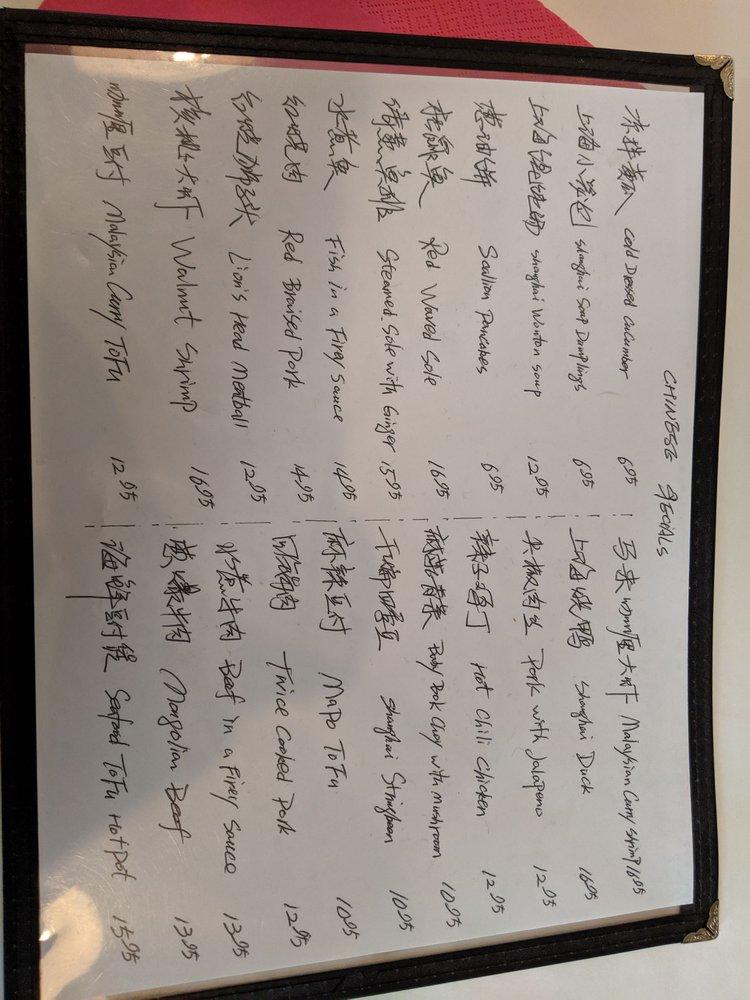 CHINESE SPECIALS
凉拌黄瓜 Cold Dessed Cucumber 6.95
上海小笼包 Shanghai Soap Dumplings 6.95
上海馄饨 Shanghai Wonton soup 12.95
葱油饼 Scallion Pancakes 6.95
Red Waved Sole 16.95
Steamed Sole with Ginger 15.95
水煮鱼 Fish in a Firey Sauce 14.95
红烧肉 Red Braised Pork 14.95
红烧狮子头 Lion's Head Meatball 12.95
核桃大虾 Walnut Shrimp 16.95
咖喱豆付 Malaysian Curry Tofu 12.95
马来咖喱大虾 Malaysian Curry Shrimp 16.95
上海 鸭 Shanghai Duck 16.95
尖椒肉丝 Pork with Jalapeno 12.95
辣子鸡丁 Hot Chili Chicken 12.95
Baby Book Choy with mushroom 10.95
干煸四季豆 Shanghai Stringbean 10.95
麻辣豆付 MaPo ToFu 10.95
回锅肉 Twice Cooked Pork 12.95
水煮牛肉 Beef in a Firey Sauce 13.95
葱爆牛肉 Mongolian Beef 13.95
海鲜豆付煲 Seafood ToFu HotPot 15.95